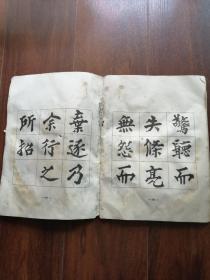 驚聽而
失條亮
無怨而
棄逐乃
余行之
所招